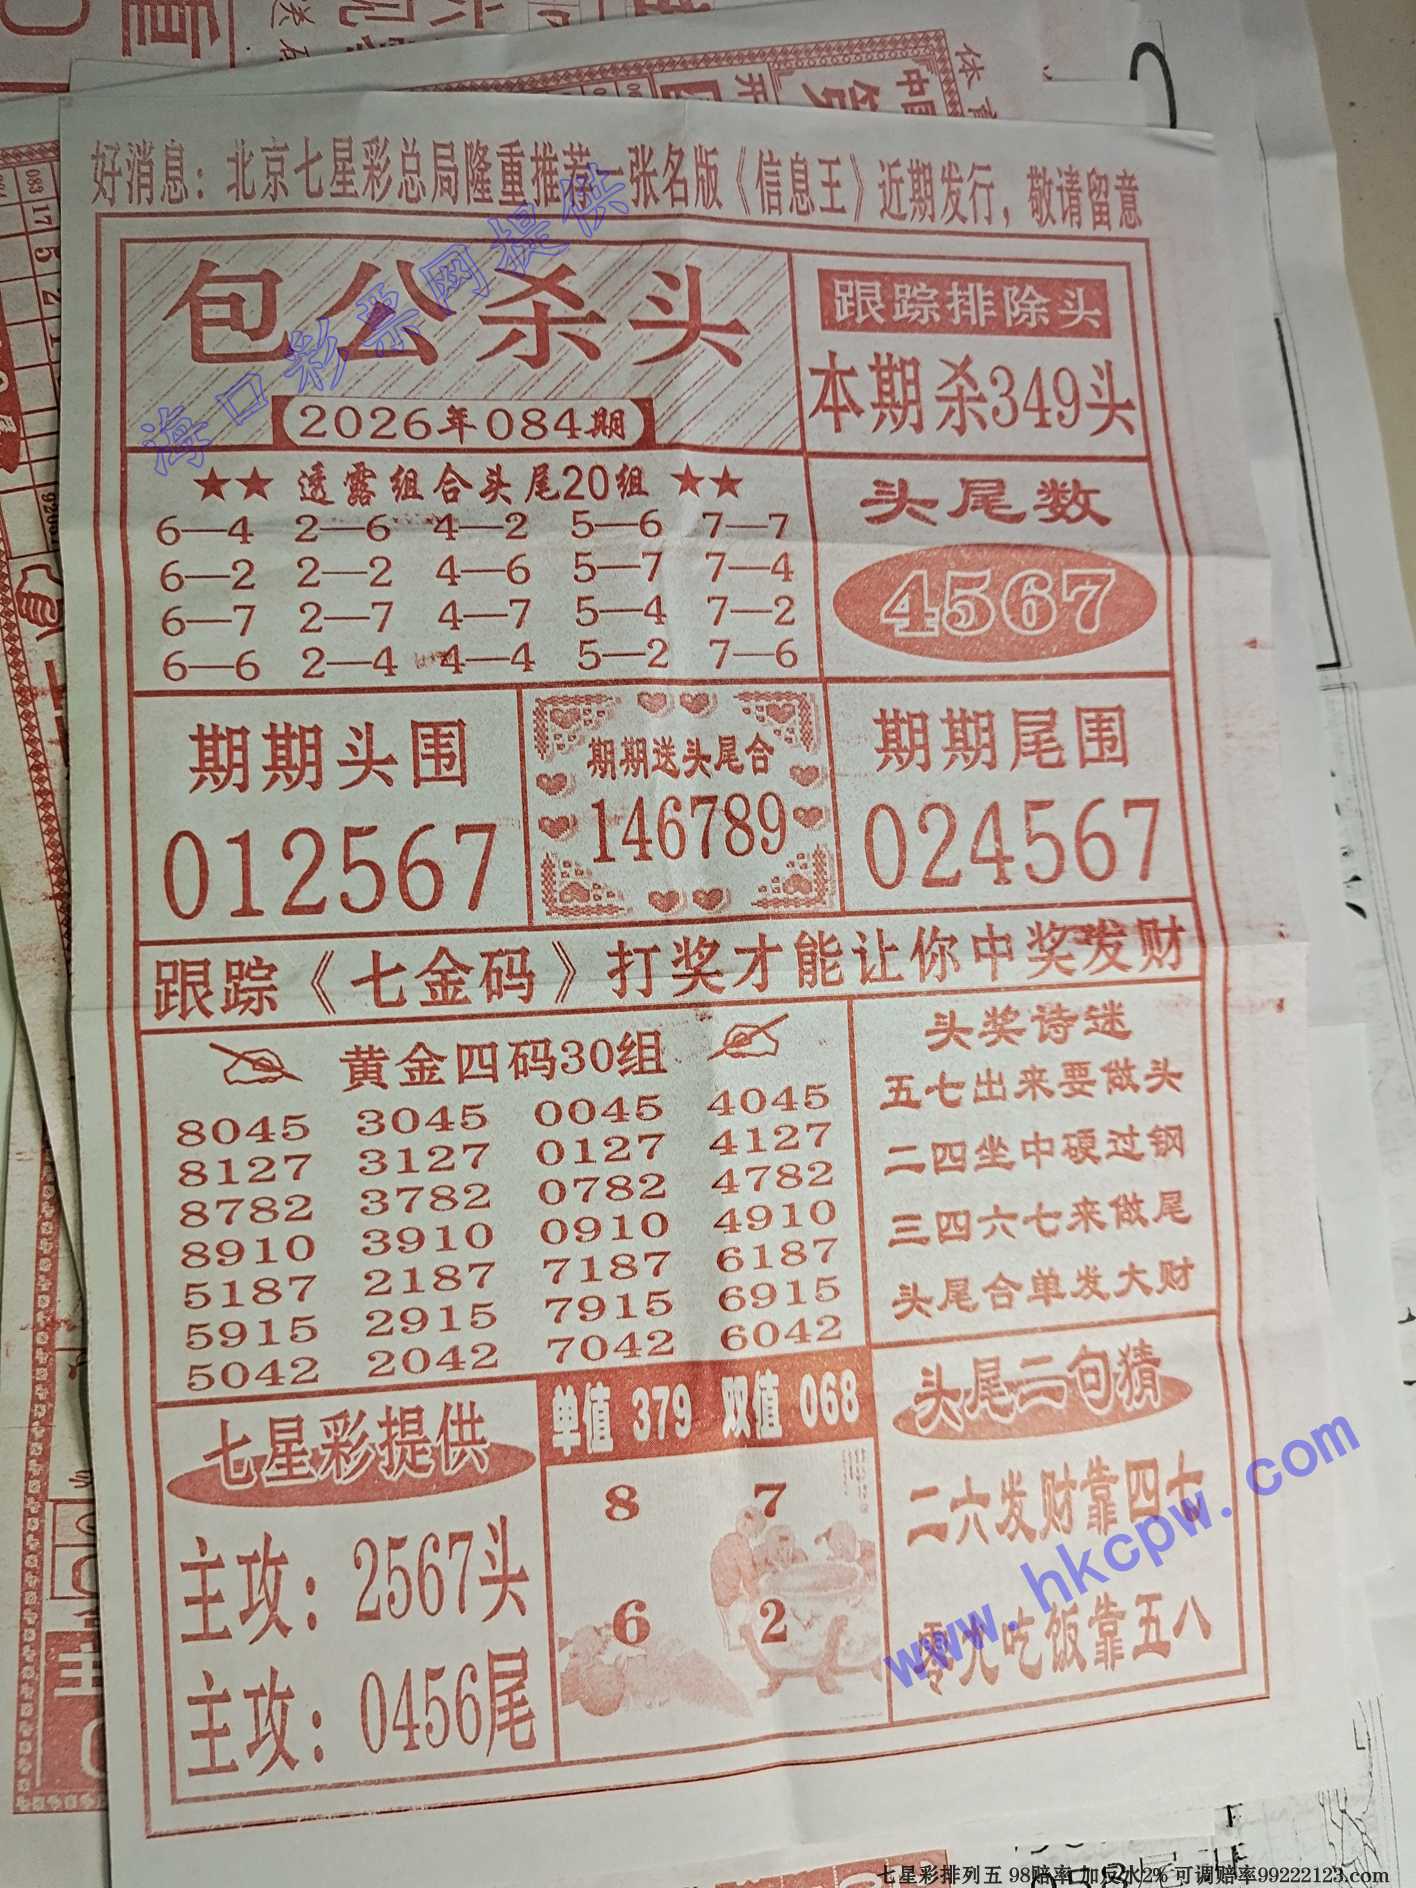 好消息：北京七星彩总局隆重推荐一张名版《信息王》近期发行，敬请留意
包公杀头
2026年084期
跟踪排除头
本期杀349头
★★ 透露组合头尾20组 ★★
6—4 2—6 4—2 5—6 7—7
6—2 2—2 4—6 5—7 7—4
6—7 2—7 4—7 5—4 7—2
6—6 2—4 4—4 5—2 7—6
头尾数
4567
期期头围
012567
期期送头尾合
146789
期期尾围
024567
跟踪《七金码》打奖才能让你中奖发财
黄金四码30组
8045 3045 0045 4045
8127 3127 0127 4127
8782 3782 0782 4782
8910 3910 0910 4910
5187 2187 7187 6187
5915 2915 7915 6915
5042 2042 7042 6042
头奖诗迷
五七出来要做头
二四坐中硬过钢
三四六七来做尾
头尾合单发大财
七星彩提供
主攻：2567头
主攻：0456尾
单值 379 双值 068
8 7
6 2
头尾二句猜
二六发财靠四七
零九吃饭靠五八
海口彩票网提供
www.hkcpw.com
七星彩排列五 98赔率 加反水2% 可调赔率99222123.com